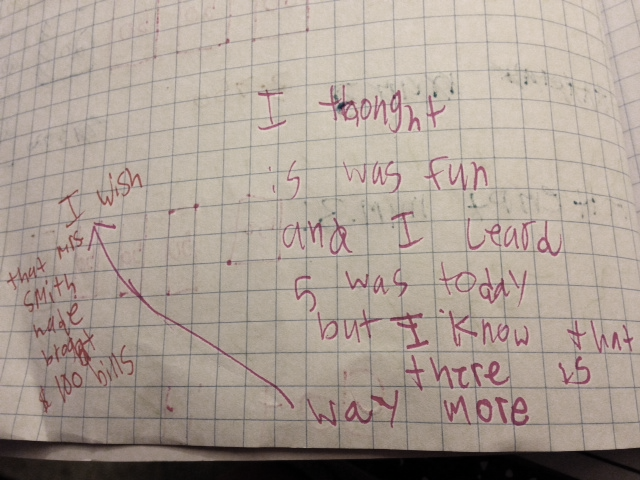 I thonght
is was fun
and I Leard
5 was today
but I know thht
there is
way more
I wish
that mrs
smith
hade
broght
$100 bills